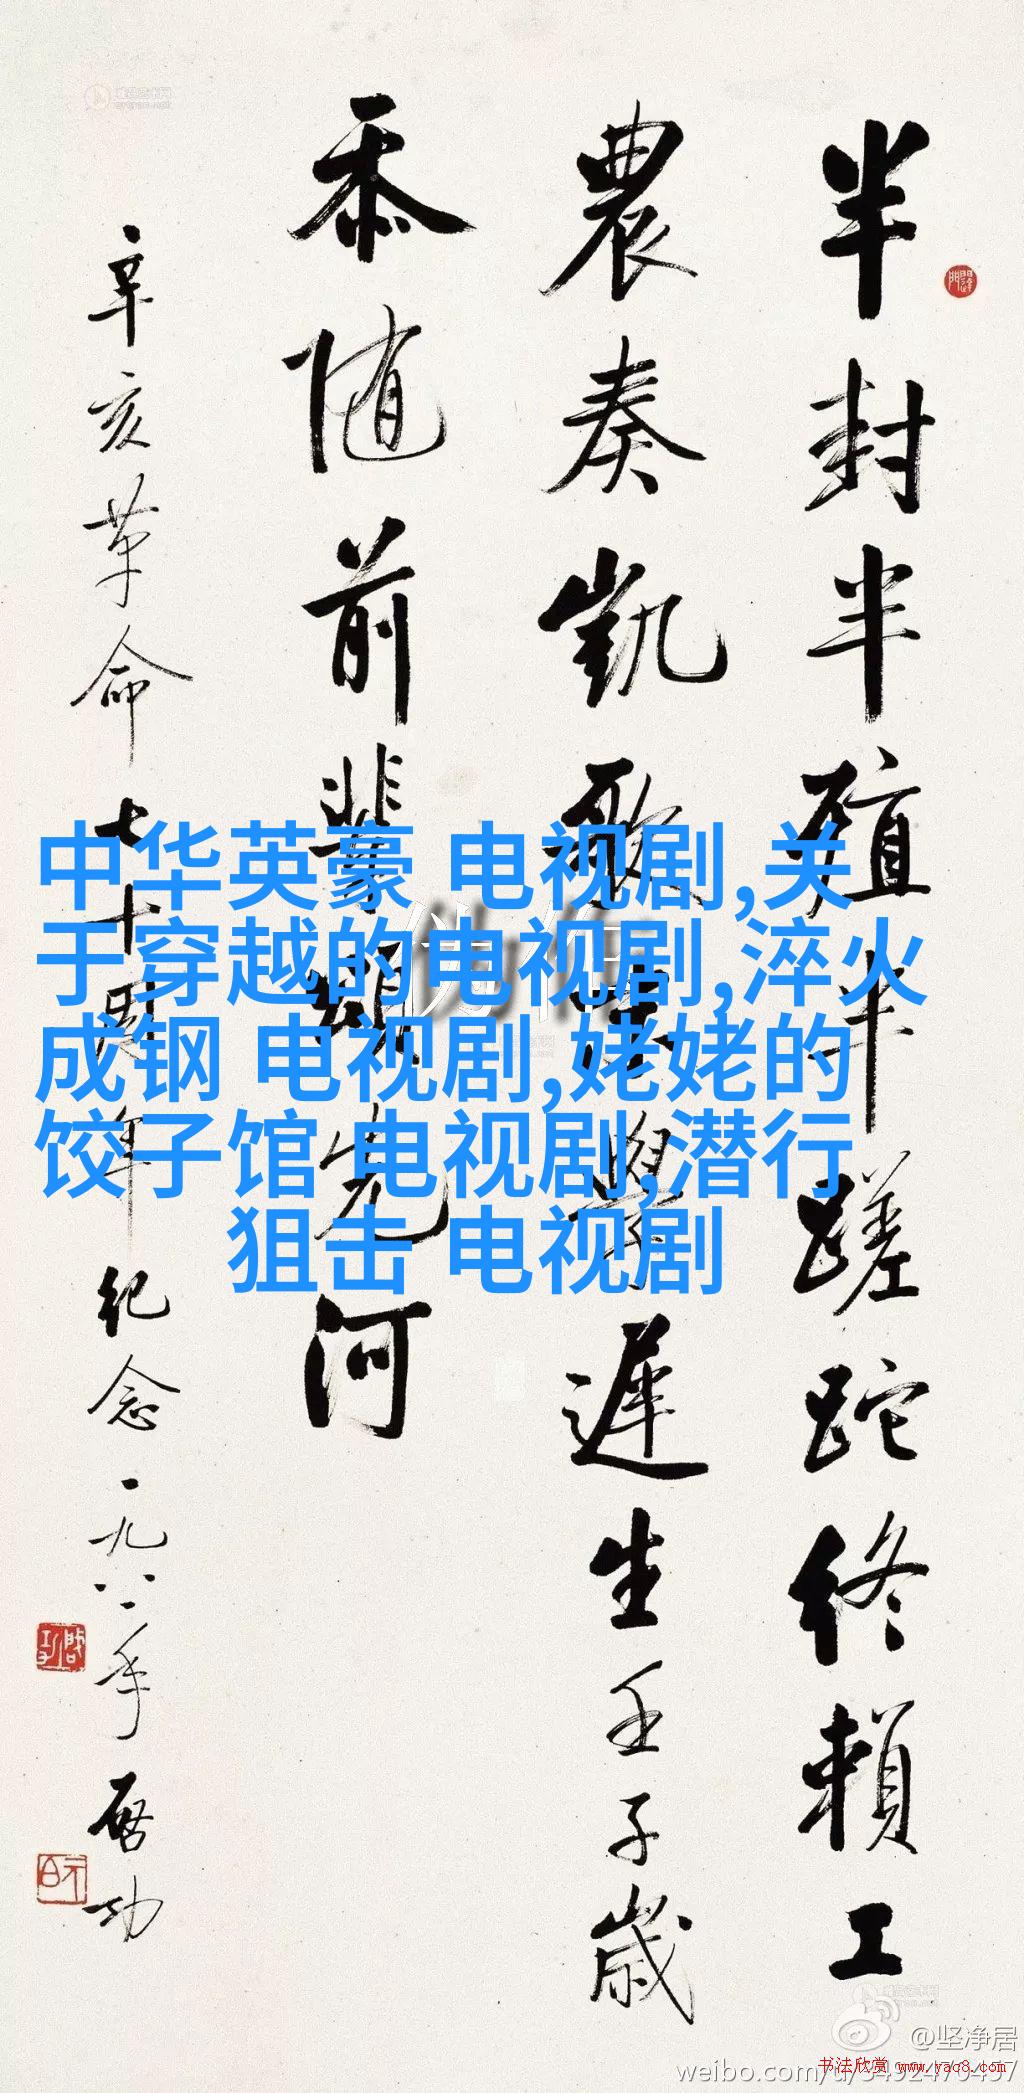 半封半殖半蹉跎终赖工
農奏凯歌嘆學遲生壬子歲
忝随前輩類先河
辛亥革命七十周年纪念一九八一年启功
中华英豪 电视剧,关
于穿越的电视剧,淬火
成钢 电视剧,姥姥的
饺子馆 电视剧,潜行
狙击 电视剧
@坚净居
weibo.com/u/5492470457
书法欣赏 www.yac8.com